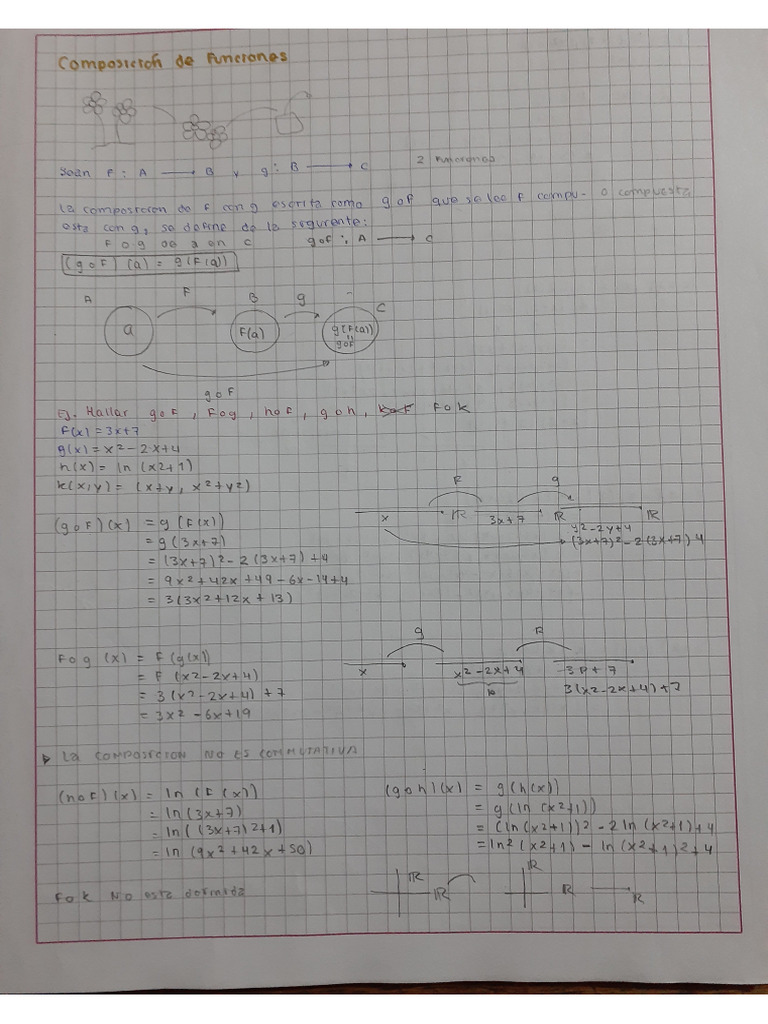 Composición de Funciones
Sean F : A → B y g : B → C 2 Funciones
La composición de F con g escrita como g o F que se lee F compu- o compuesta
esta con g, se define de la siguiente:
F o g de a en C goF : A → C
(goF) (a) = g(F(a))
A F B g C
a F(a) g(F(a))
goF
goF
Ej. Hallar goF , Fog, hoF, goh, koF Fok
F(x) = 3x+7
g(x) = x2 - 2x+4
h(x) = ln (x2+1)
k(x,y) = (x+y, x2+y2)
F g
x IR 3x+7 IR y2-2y+4 IR
(3x+7)2-2(3x+7) 4
(goF)(x) = g(F(x))
= g(3x+7)
= (3x+7)2-2(3x+7)+4
= 9x2+42x+49-6x-14+4
= 3(3x2+12x+13)
g F
x x2-2x+4 3p+7
p 3(x2-2x+4)+7
Fog (x) = F(g(x))
= F (x2-2x+4)
= 3(x2-2x+4)+7
= 3x2-6x+19
La composicion no es conmutativa
(hoF)(x) = ln (F(x))
= ln(3x+7)
= ln((3x+7)2+1)
= ln (9x2+42x+50)
(goh)(x) = g(h(x))
= g(ln (x2+1))
= (ln(x2+1))2-2ln(x2+1)+4
= ln2(x2+1)-ln(x2+1)2+4
Fok No esta
IR IR IR IR IR